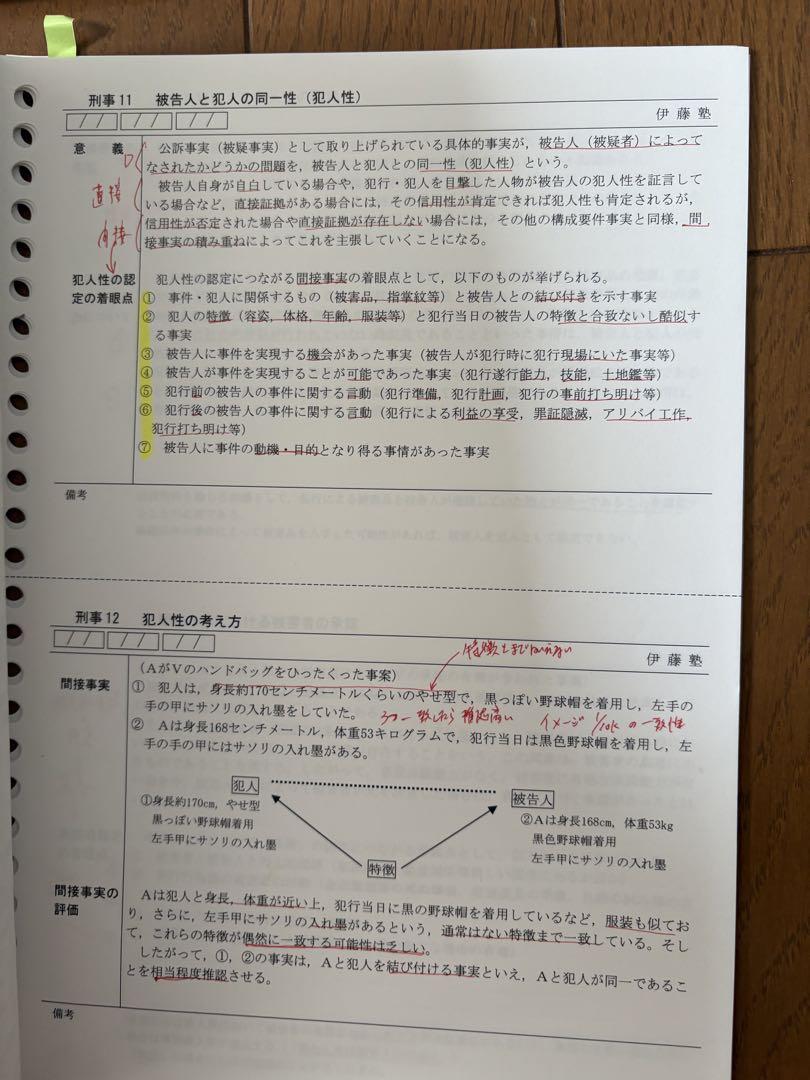 刑事11 被告人と犯人の同一性（犯人性）
/ / / / / /
伊藤塾
意 義
公訴事実（被疑事実）として取り上げられている具体的事実が，被告人（被疑者）によって
なされたかどうかの問題を，被告人と犯人との同一性（犯人性）という。
被告人自身が自白している場合や，犯行・犯人を目撃した人物が被告人の犯人性を証言して
いる場合など，直接証拠がある場合には，その信用性が肯定できれば犯人性も肯定されるが，
信用性が否定された場合や直接証拠が存在しない場合には，その他の構成要件事実と同様，間
接事実の積み重ねによってこれを主張していくことになる。
直接
間接
犯人性の認
定の着眼点
犯人性の認定につながる間接事実の着眼点として，以下のものが挙げられる。
① 事件・犯人に関係するもの（被害品，指掌紋等）と被告人との結び付きを示す事実
② 犯人の特徴（容姿，体格，年齢，服装等）と犯行当日の被告人の特徴と合致ないし酷似す
る事実
③ 被告人に事件を実現する機会があった事実（被告人が犯行時に犯行現場にいた事実等）
④ 被告人が事件を実現することが可能であった事実（犯行遂行能力，技能，土地鑑等）
⑤ 犯行前の被告人の事件に関する言動（犯行準備，犯行計画，犯行の事前打ち明け等）
⑥ 犯行後の被告人の事件に関する言動（犯行による利益の享受，罪証隠滅，アリバイ工作，
犯行打ち明け等）
⑦ 被告人に事件の動機・目的となり得る事情があった事実
備考
刑事12 犯人性の考え方
/ / / / / /
伊藤塾
特徴とまではいえない
間接事実
（AがVのハンドバッグをひったくった事案）
① 犯人は，身長約170センチメートルくらいのやせ型で，黒っぽい野球帽を着用し，左手の
手の甲にサソリの入れ墨をしていた。
イメージ 1/10k の一致性
② Aは身長168センチメートル，体重53キログラムで，犯行当日は黒色野球帽を着用し，左
手の手の甲にはサソリの入れ墨がある。
犯人
被告人
①身長約170cm，やせ型
黒っぽい野球帽着用
左手甲にサソリの入れ墨
②Aは身長168cm，体重53kg
黒色野球帽着用
左手甲にサソリの入れ墨
特徴
間接事実の
評価
Aは犯人と身長，体重が近い上，犯行当日に黒の野球帽を着用しているなど，服装も似てお
り，さらに，左手甲にサソリの入れ墨があるという，通常はない特徴まで一致している。そし
て，これらの特徴が偶然に一致する可能性は乏しい。
したがって，①，②の事実は，Aと犯人を結び付ける事実といえ，Aと犯人が同一であるこ
とを相当程度推認させる。
備考